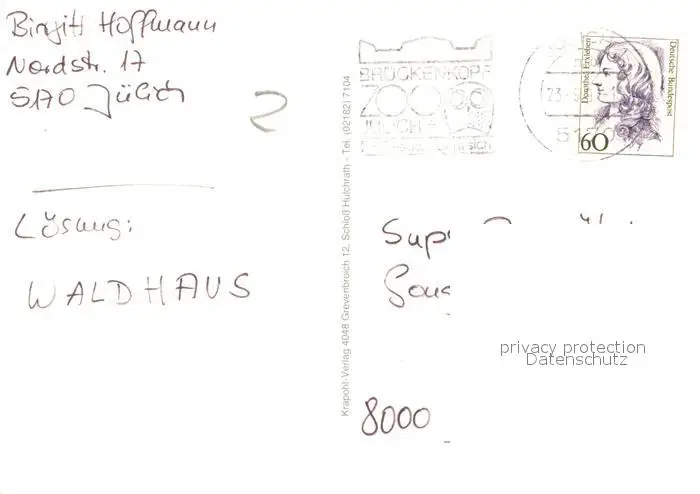 Birgitt Hoffmann
Nordstr. 17
5170 Jülich
2
Lösung:
WALDHAUS
Krapohl-Verlag 4048 Grevenbroich 12, Schloß Hülchrath - Tel. (02182) 7104
BRÜCKENKOPF
ZOO
JÜLICH
sich
23
5170
Dorothea Erxleben
Deutsche Bundespost
60
Sup
8000
privacy protection
Datenschutz